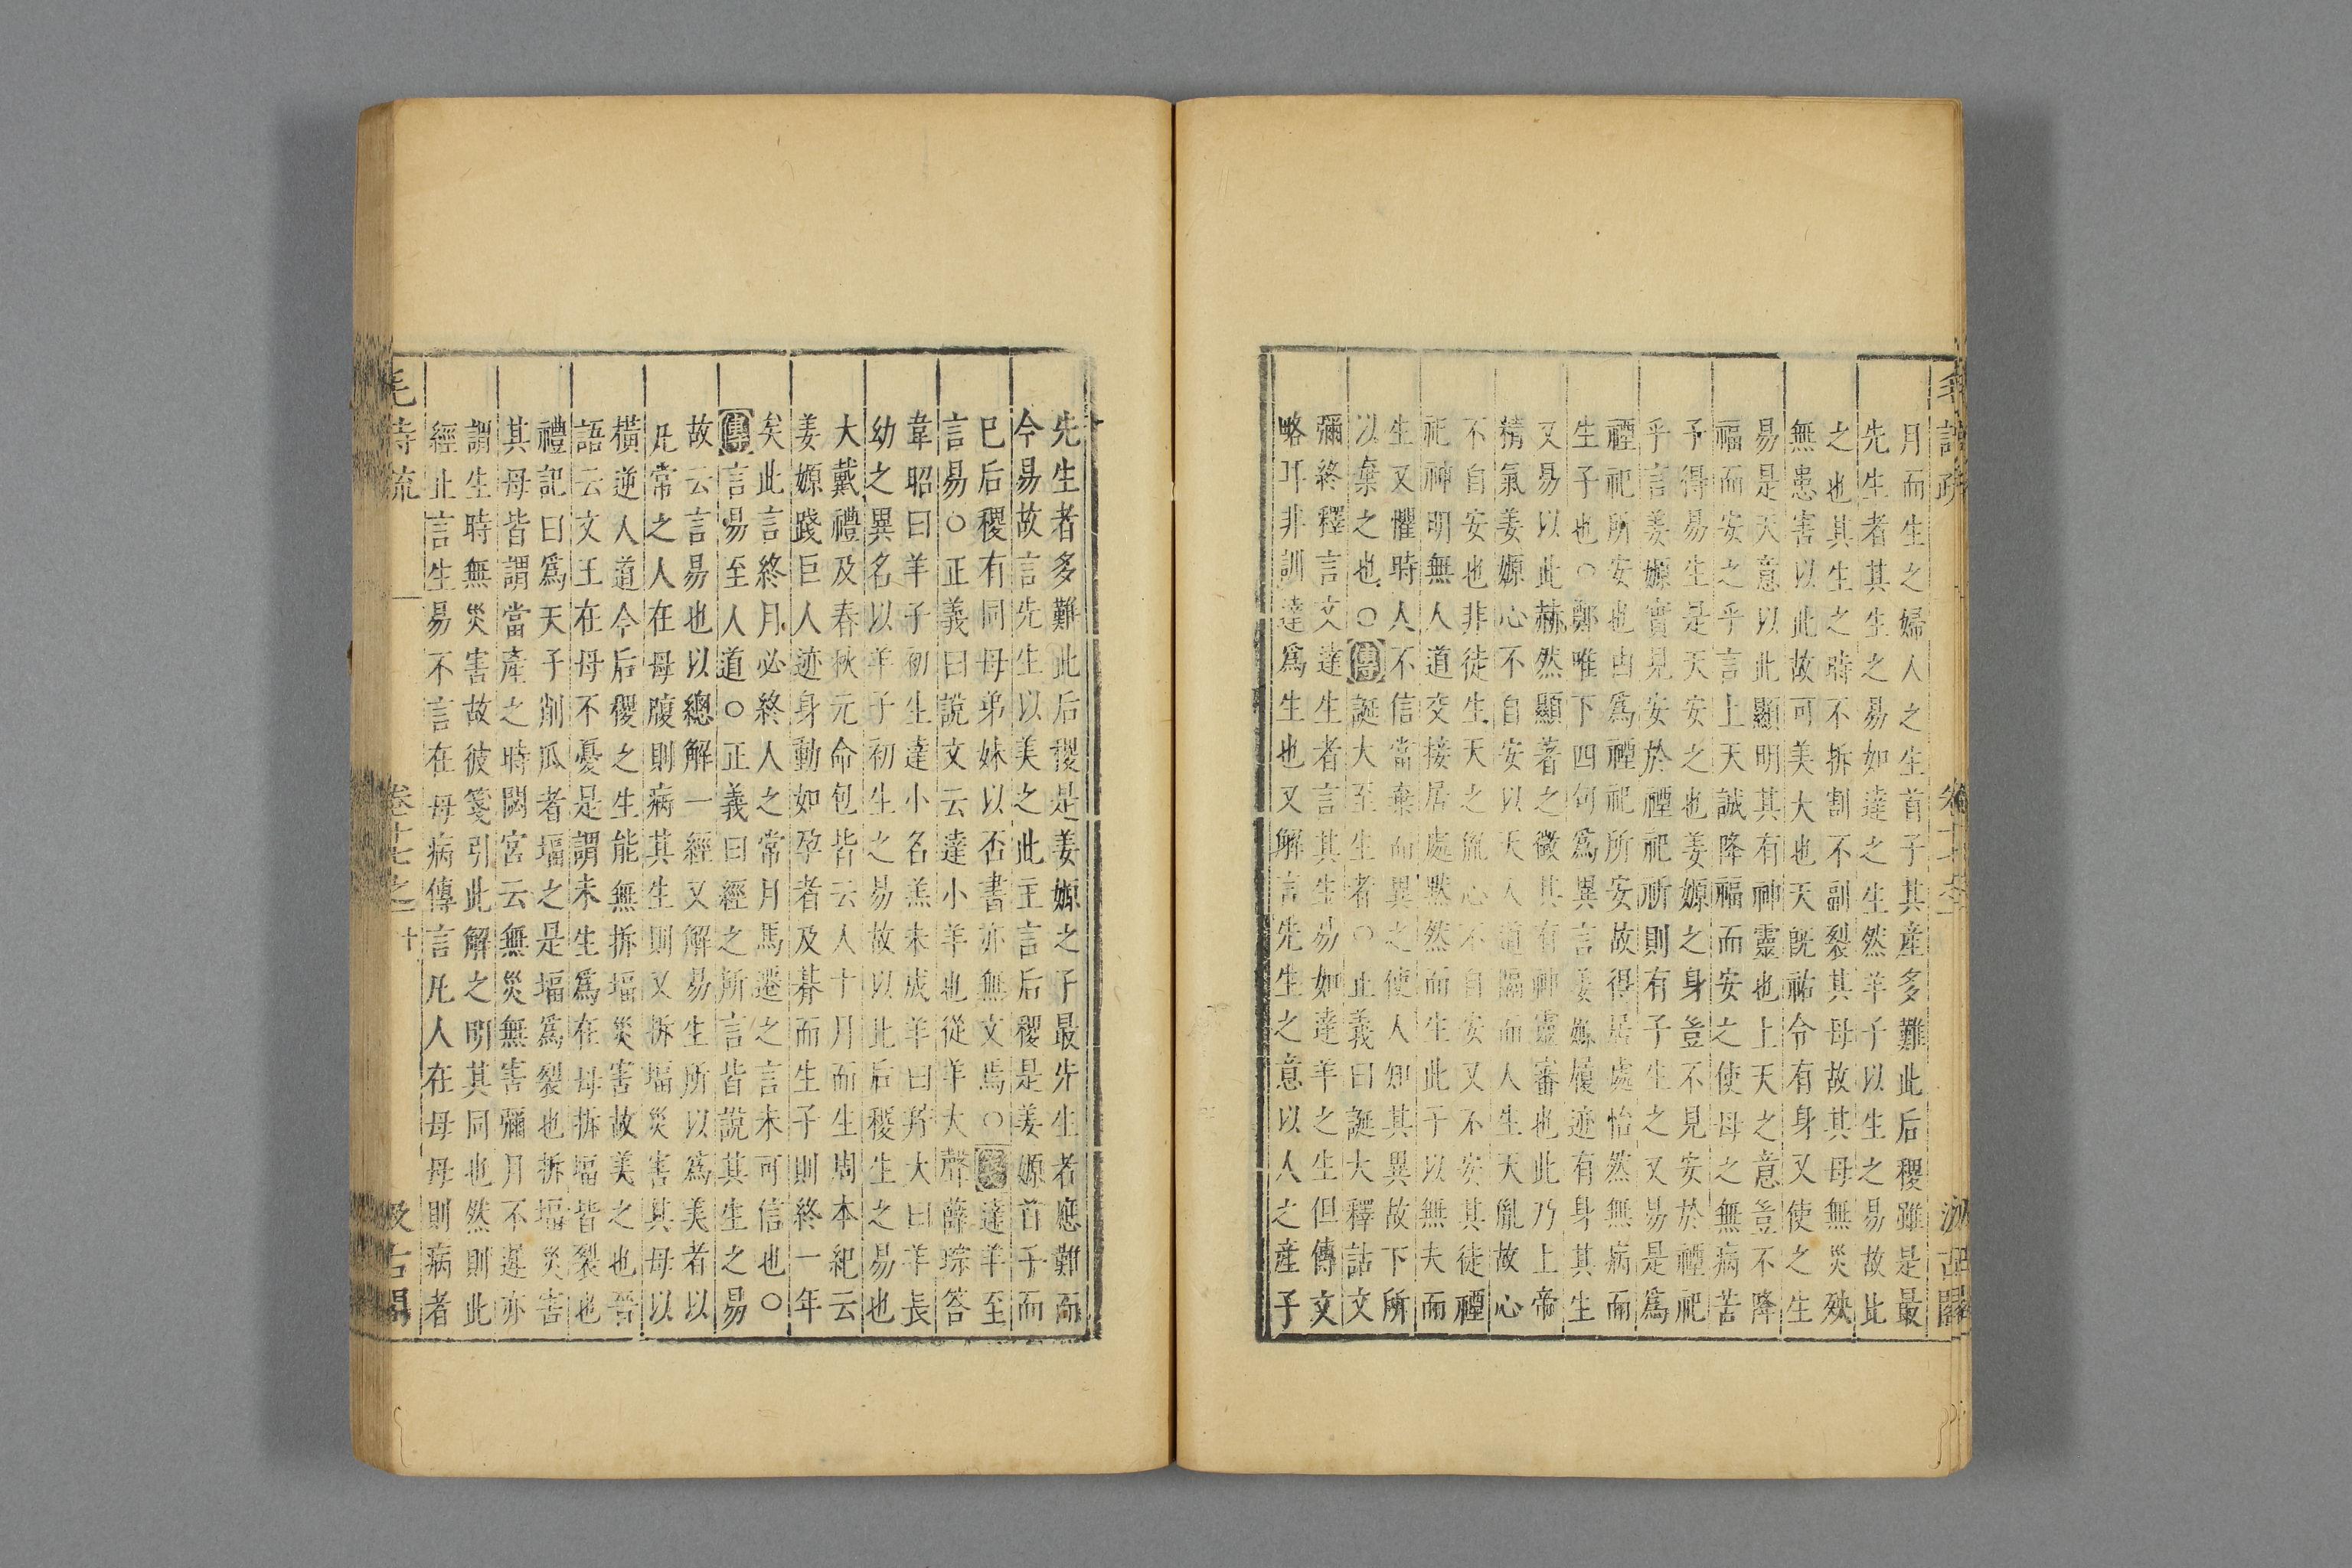 毛詩疏
卷十七之一
汲古閣
月而生之婦人之生首子其産多難此后稷雖是最
先生者其生之易如達之生然羊子以生之易故此
之也其生之時不拆割不副裂其母故其母無災殃
無患害以此故可美大也天旣祐令有身又使之生
易是天意以此顯明其有神靈也上天之意豈不降
福而安之乎言上天誠降福而安之使母之無病苦
予得易生是天安之也姜嫄之身豈不見安於禋祀
乎言姜嫄實見安於禋祀所則有子生之又易是爲
禋祀所安也由爲禋祀所安故得居處怡然無病而
生子也○鄭唯下四句爲異言姜嫄履迹有身其生
又易以此赫然顯著之徵其有神靈審也此乃上帝
精氣姜嫄心不自安以天人道隔而人生天胤故心
不自安也非徒生天之胤心不自安又不安其徒禋
祀神明無人道交接居處默然而生此子以無夫而
生又懼時人不信當棄而異之使人知其異故下所
以棄之也○傳誕大至生者○正義曰誕大釋詁文
彌終釋言文達生者言其生易如達羊之生但傳文
略耳非訓達爲生也又解言先生之意以人之産子
先生者多難此后稷是姜嫄之子最先生者應難而
今易故言先生以美之此主言后稷是姜嫄首子而
已后稷有同母弟妹以否書亦無文焉○箋達羊至
言易○正義曰說文云達小羊也從羊大聲薛琮答
韋昭曰羊子初生達小名羔未成羊曰羜大曰羊長
幼之異名以羊子初生之易故以此后稷生之易也
大戴禮及春秋元命包皆云人十月而生周本紀云
姜嫄踐巨人迹身動如孕者及朞而生子則終一年
矣此言終月必終人之常月馬遷之言未可信也○
傳言易至人道○正義曰經之所言皆說其生之易
故云言易也以總解一經又解易生所以爲美者以
凡常之人在母腹則病其生則又拆堛災害其母以
橫逆人道今后稷之生能無拆堛災害故美之也晉
語云文王在母不憂是謂未生爲在母拆堛皆裂也
禮記曰爲天子削瓜者堛之是堛爲裂也拆堛災害
其母皆謂當產之時閟宮云無災無害彌月不遲亦
謂生時無災害故彼箋引此解之明其同也然則此
經止言生易不言在母病傳言凡人在母母則病者
毛詩疏
卷十七之一
十
汲古閣